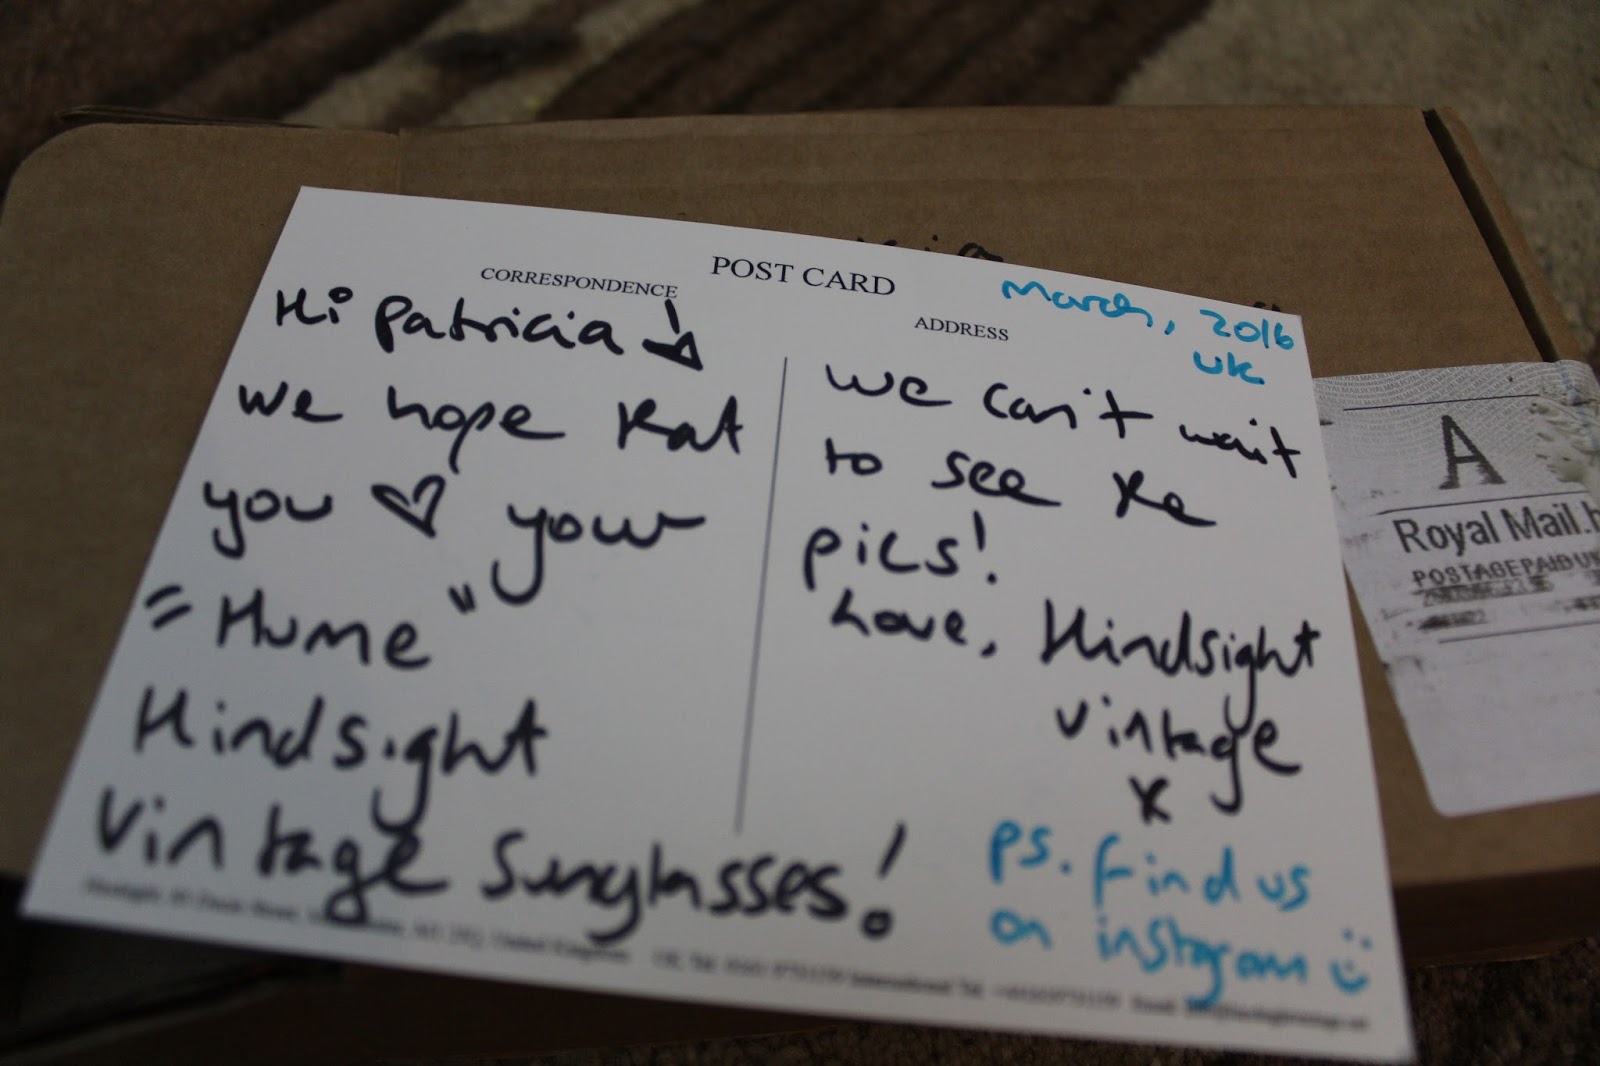 POST CARD
CORRESPONDENCE
Hi Patricia
we hope that
you ♡ your
"Hume"
Hindsight
vintage sunglasses!
ADDRESS
March, 2016
UK
we can't wait
to see the
pics!
Love, Hindsight
vintage
x
ps. find us
on instagram :)
United Kingdom
A
Royal Mail
POSTAGE PAID UK